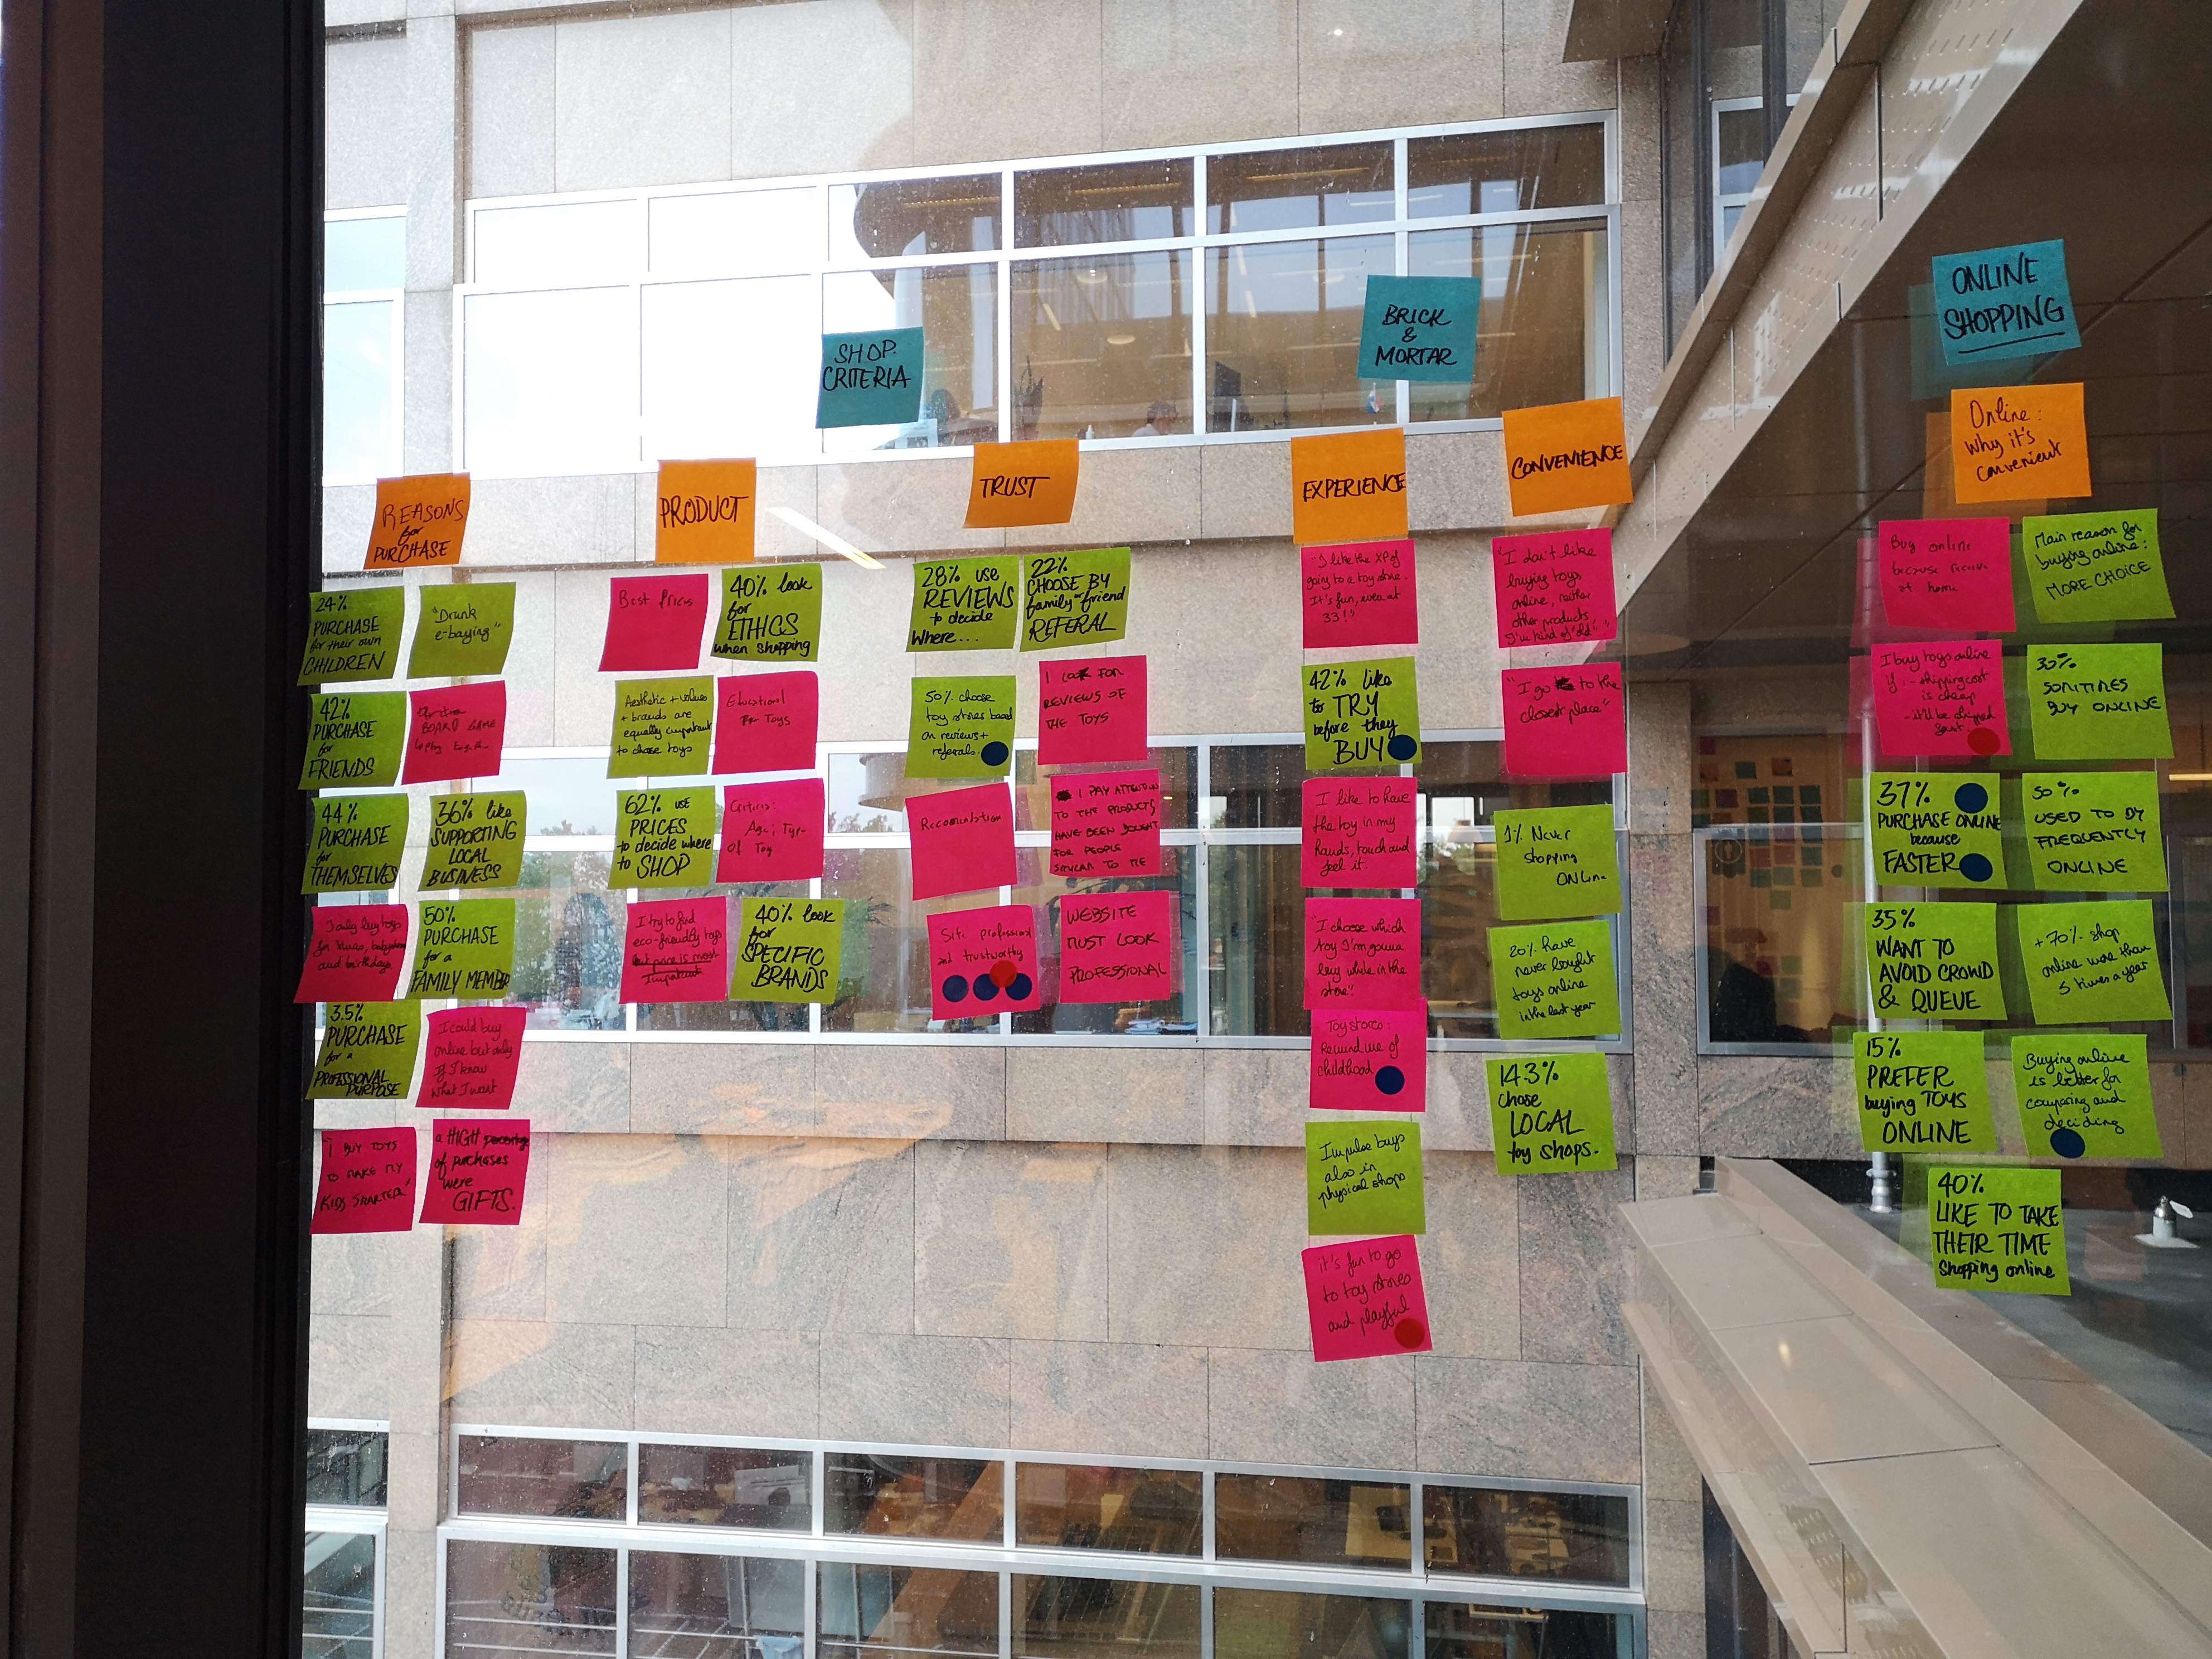 SHOP.
CRITERIA
BRICK
&
MORTAR
ONLINE
SHOPPING
REASONS
for
PURCHASE
24%
PURCHASE
for their own
CHILDREN
"Drunk
e-baying"
42%
PURCHASE
for
FRIENDS
BOARD GAME
44%
PURCHASE
for
THEMSELVES
36% like
SUPPORTING
LOCAL
BUSINESS
I only buy toys
and birthdays
50%
PURCHASE
for a
FAMILY MEMBER
3.5%
PURCHASE
for a
PROFESSIONAL
PURPOSE
I could buy
online but only
if I know
what I want
"I BUY TOYS
TO MAKE MY
KIDS SMARTER"
a HIGH percentage
of purchases
were
GIFTS.
PRODUCT
Best Prices
40% look
for
ETHICS
when shopping
Aesthetic + values
+ brands are
equally important
to chose toys
Educational
Toys
62% use
PRICES
to decide where
to SHOP
Criteria:
Age; Type
of Toy
I try to find
eco-friendly toys
but price is most
Important
40% look
for
SPECIFIC
BRANDS
TRUST
28% use
REVIEWS
to decide
Where...
22%
CHOOSE BY
family or friend
REFERAL
50% choose
toy stores based
on reviews +
referrals.
I LOOK FOR
REVIEWS OF
THE TOYS
I PAY ATTENTION
TO THE PRODUCTS
HAVE BEEN BOUGHT
FOR PEOPLE
SIMILAR TO ME
Site professional
and trustworthy
WEBSITE
MUST LOOK
PROFESSIONAL
EXPERIENCE
"I like the XP of
going to a toy store.
It's fun, even at
33!"
42% like
to TRY
before they
BUY
I like to have
the toy in my
hands, touch and
feel it.
"I choose which
toy I'm gonna
buy while in the
store"
Toy stores:
Remind me of
childhood
Impulse buys
also in
physical shops
it's fun to go
to toy stores
and playful
CONVENIENCE
"I don't like
buying toys
online, neither
other products,
I'm kind of "old""
"I go to the
closest place"
1% Never
shopping
ONLine
20% have
never bought
toys online
in the last year
14.3%
chose
LOCAL
toy shops.
Online:
why it's
convenient
Buy online
because receive
at home
Main reason for
buying online:
MORE CHOICE
I buy toys online
if: - shipping cost
is cheap
- it'll be shipped
fast.
30%
SOMTIMES
BUY ONLINE
37%
PURCHASE ONLINE
because
FASTER
50%
USED TO BY
FREQUENTLY
ONLINE
35%
WANT TO
AVOID CROWD
& QUEUE
+70% shop
online more than
5 times a year
15%
PREFER
buying TOYS
ONLINE
Buying online
is better for
comparing and
deciding
40%
LIKE TO TAKE
THEIR TIME
Shopping online